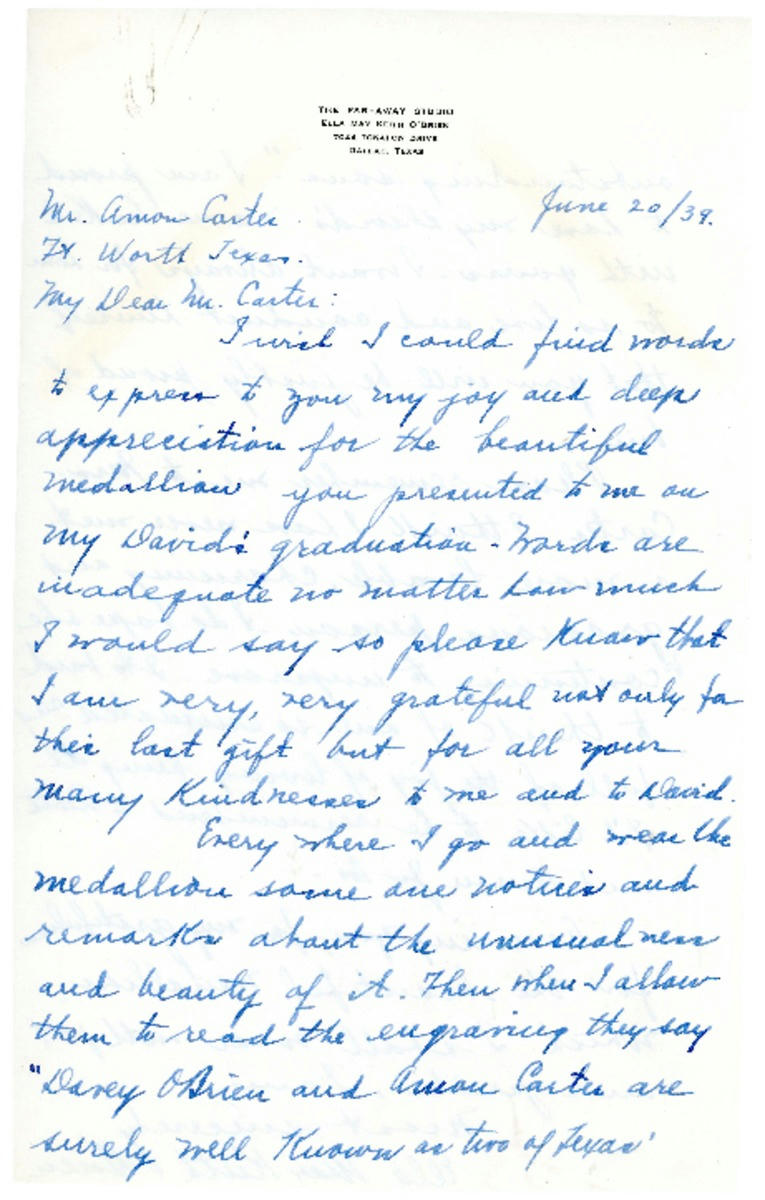 THE FAR-AWAY STUDIO
ELLA MAY KEITH O'BRIEN
DRIVE
DALLAS, TEXAS
June 20/39.
Mr. Amon Carter.
Ft. Worth Texas.
My Dear Mr. Carter:
I wish I could find words
to express to you my joy and deep
appreciation for the beautiful
medallion you presented to me on
my David's graduation - Words are
inadequate no matter how much
I would say so please know that
I am very, very grateful not only for
this last gift but for all your
many kindnesses to me and to David.
Every where I go and wear the
medallion some one notices and
remarks about the unusualness
and beauty of it. Then when I allow
them to read the engraving they say
"Davey O'Brien and Amon Carter are
surely well known as two of Texas'